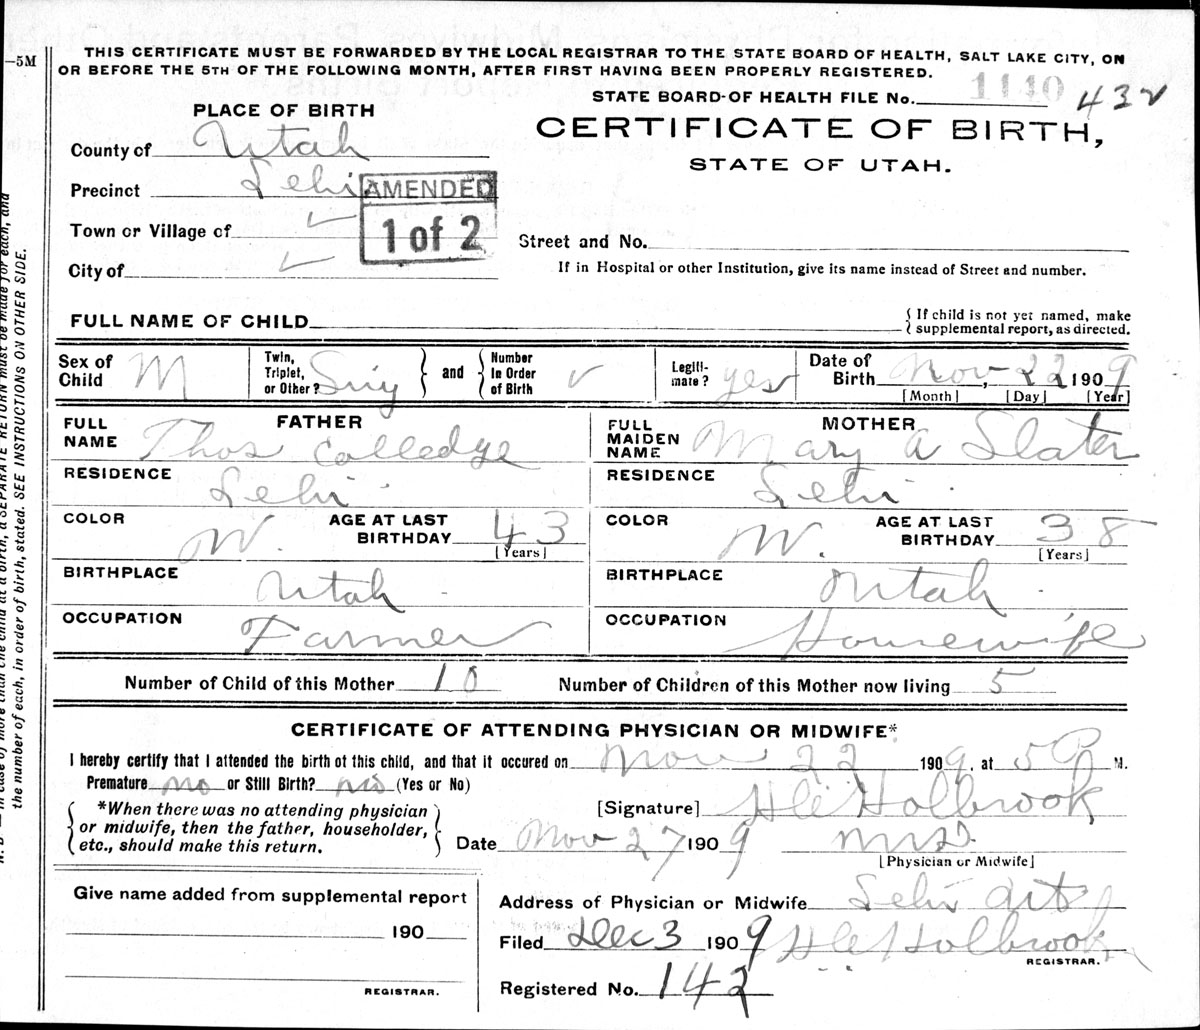 THIS CERTIFICATE MUST BE FORWARDED BY THE LOCAL REGISTRAR TO THE STATE BOARD OF HEALTH, SALT LAKE CITY, ON
—5M
OR BEFORE THE 5TH OF THE FOLLOWING MONTH, AFTER FIRST HAVING BEEN PROPERLY REGISTERED.
STATE BOARD OF HEALTH FILE No. 1140 432
PLACE OF BIRTH
CERTIFICATE OF BIRTH,
County of Utah
STATE OF UTAH.
Precinct Lehi
AMENDED
1 of 2
Town or Village of
Street and No.
City of
If in Hospital or other Institution, give its name instead of Street and number.
FULL NAME OF CHILD
{ If child is not yet named, make
supplemental report, as directed.
Sex of Child M
Twin, Triplet, or Other? Sing } and { Number In Order of Birth
Legiti-mate? yes
Date of Birth Nov, 22 1909
[Month] [Day] [Year]
FATHER
FULL NAME Thos Colledge
MOTHER
FULL MAIDEN NAME Mary A Slater
RESIDENCE Lehi
RESIDENCE Lehi
COLOR W. AGE AT LAST BIRTHDAY 43 [Years]
COLOR W. AGE AT LAST BIRTHDAY 38 [Years]
BIRTHPLACE Utah
BIRTHPLACE Utah
OCCUPATION Farmer
OCCUPATION Housewife
Number of Child of this Mother 10 Number of Children of this Mother now living 5
CERTIFICATE OF ATTENDING PHYSICIAN OR MIDWIFE*
I hereby certify that I attended the birth of this child, and that it occured on Nov 22 1909, at 5 P M.
Premature no or Still Birth? no (Yes or No)
{ *When there was no attending physician
or midwife, then the father, householder,
etc., should make this return. }
[Signature] Holbrook
Date Nov 27 1909
[Physician or Midwife]
Give name added from supplemental report
190
REGISTRAR.
Address of Physician or Midwife Lehi
Filed Dec 3 1909 Holbrook
REGISTRAR.
Registered No. 142
the number of each, in order of birth, stated. SEE INSTRUCTIONS ON OTHER SIDE.